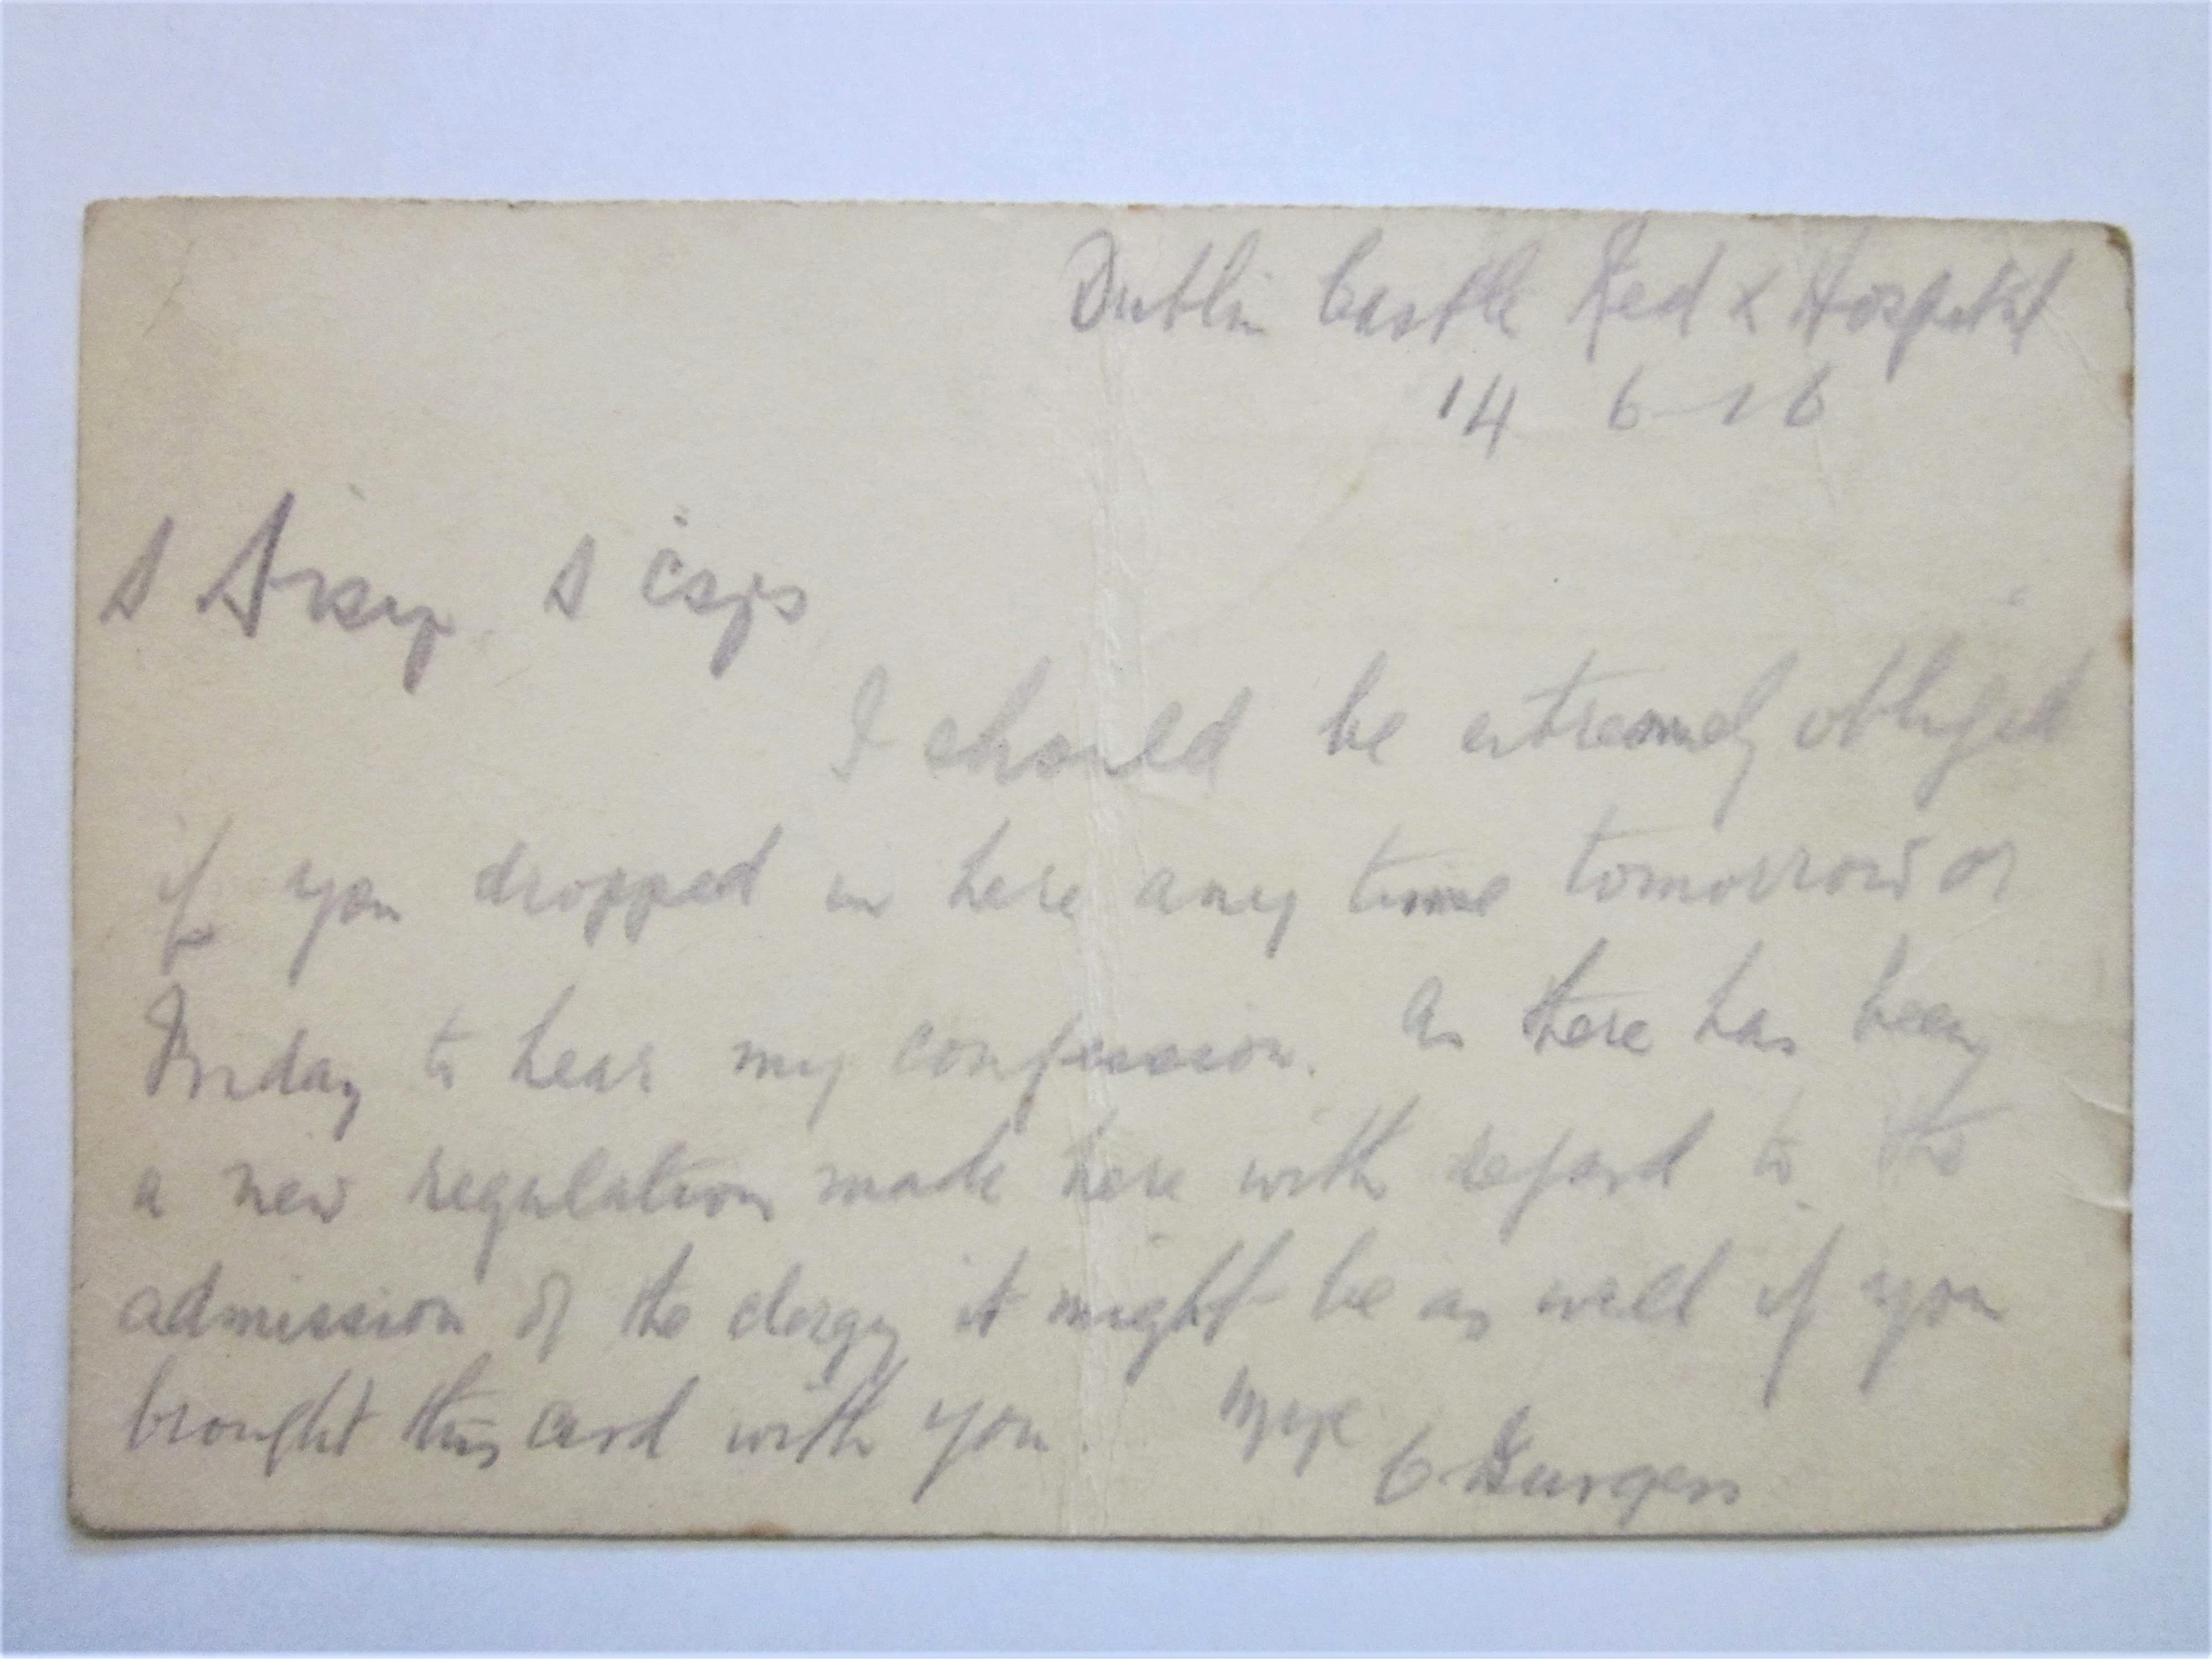 Dublin Castle Red X Hospital
14 6-16
A
I should be extremely obliged
if you dropped in here any time tomorrow or
Friday to hear my confession. As there has been
a new regulation made here with regard to the
admission of the clergy it might be as well if you
brought this card with you. Mise
C Burgess